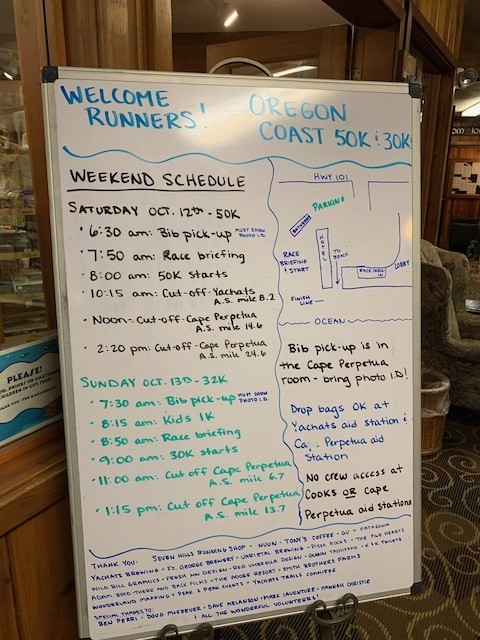 WELCOME RUNNERS!
OREGON COAST 50K & 30K
WEEKEND SCHEDULE
SATURDAY OCT. 12TH - 50K
• 6:30 am: Bib pick-up MUST SHOW PHOTO I.D.
• 7:50 am: Race briefing
• 8:00 am: 50K starts
• 10:15 am: Cut-off-Yachats
A.S. mile 8.2
• Noon- Cut-off- Cape Perpetua
A.S. mile 14.6
• 2:20 pm: Cut-off-Cape Perpetua
A.S. mile 24.6
SUNDAY OCT. 13TH - 32K
• 7:30 am: Bib pick-up MUST SHOW PHOTO I.D.
• 8:15 am: Kids 1K
• 8:50 am: Race briefing
• 9:00 am: 30K starts
• 11:00 am: Cut off Cape Perpetua
A.S. mile 6.7
• 1:15 pm: Cut off Cape Perpetua
A.S. mile 13.7
HWY 101
PARKING
HOTEL
TO BEACH
RACE BRIEFING & START
RACE CHECK IN
LOBBY
FINISH LINE
OCEAN
Bib pick-up is in
the Cape Perpetua
room - bring photo I.D!
Drop bags OK at
Yachats aid station &
Perpetua aid
Station
No crew access at
Cooks OR Cape
Perpetua aid stations
THANK YOU: SEVEN HILLS RUNNING SHOP - NUUN - TONY'S COFFEE - GU - PATAGONIA
YACHATS BREWING - FT. GEORGE BREWERY - VARIETAL BREWING - PIZZA ROCKS - THE PINE HEARTS
WILD BILL GRAPHICS - FRESH INK DESIGN - RED UMBRELLA DESIGN - GLENN TACHIYAMA
ADAM BOYD - THERE AND BACK FILMS - THE ADOBE RESORT - SMITH BROTHERS FARMS
WONDERLAND MAPPING - PEAK & PEAK EVENTS - YACHATS TRAILS COMMITTEE
SPECIAL THANKS TO:
BEN PERRI - DOUG MCKEEVER - DAVE MELANSON - MARK LAVENTURE - HANNAH CHRISTIE
& ALL THE WONDERFUL VOLUNTEERS!
PLEASE!